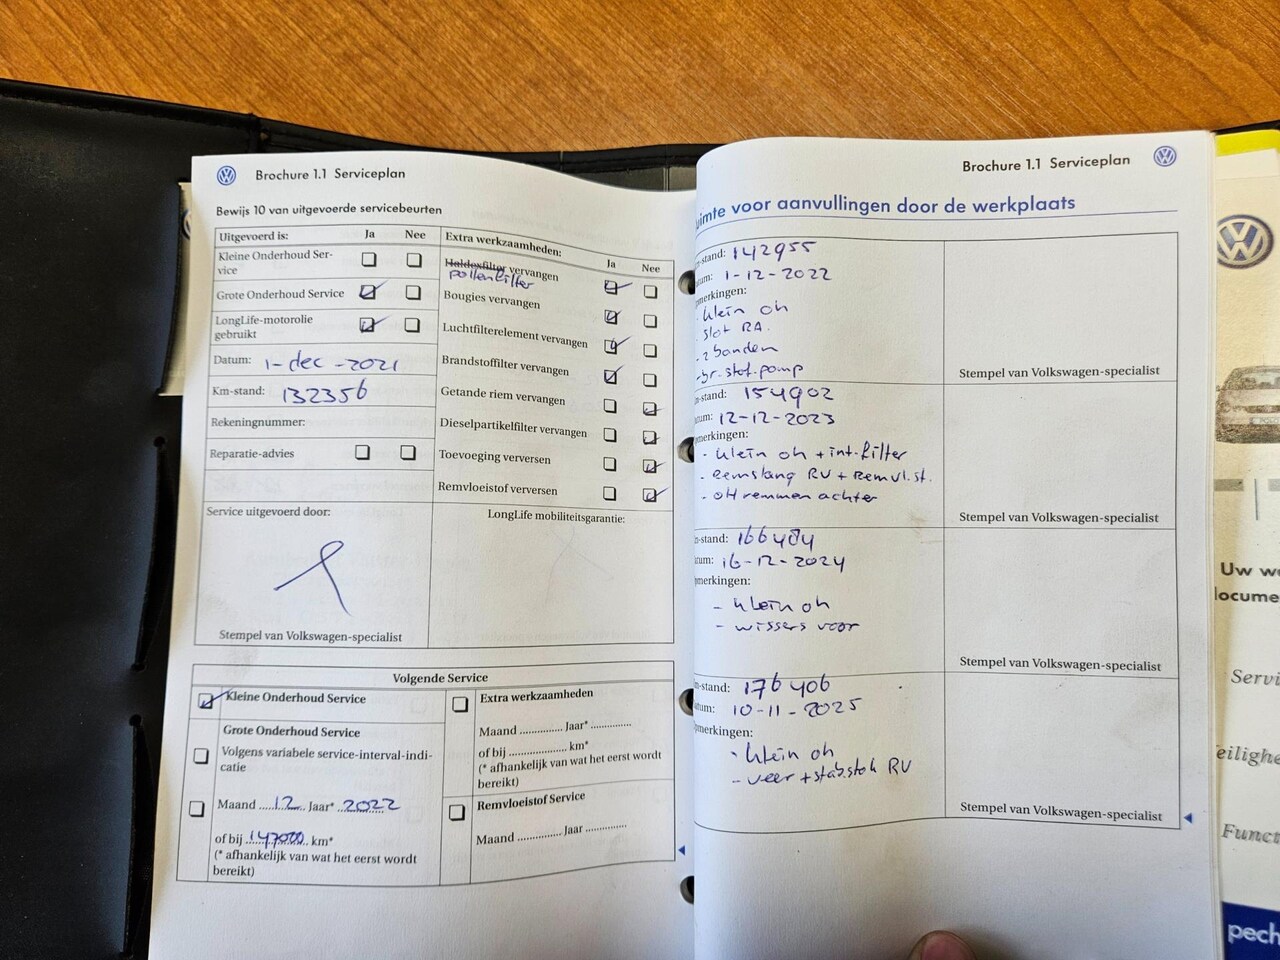 Brochure 1.1 Serviceplan
Bewijs 10 van uitgevoerde servicebeurten
Uitgevoerd is: Ja Nee
Kleine Onderhoud Ser-
vice
Grote Onderhoud Service
LongLife-motorolie
gebruikt
Datum: 1-dec-2021
Km-stand: 132356
Rekeningnummer:
Reparatie-advies
Service uitgevoerd door:
Stempel van Volkswagen-specialist
Extra werkzaamheden: Ja Nee
Haldexfilter vervangen
pollenfilter
Bougies vervangen
Luchtfilterelement vervangen
Brandstoffilter vervangen
Getande riem vervangen
Dieselpartikelfilter vervangen
Toevoeging verversen
Remvloeistof verversen
LongLife mobiliteitsgarantie:
Volgende Service
Kleine Onderhoud Service
Grote Onderhoud Service
Volgens variabele service-interval-indi-
catie
Maand ....12... Jaar* .2022
of bij .147000.. km*
(* afhankelijk van wat het eerst wordt
bereikt)
Extra werkzaamheden
Maand .............. Jaar* ..............
of bij .................... km*
(* afhankelijk van wat het eerst wordt
bereikt)
Remvloeistof Service
Maand .............. Jaar ..............
Brochure 1.1 Serviceplan
uimte voor aanvullingen door de werkplaats
-stand: 142955
tum: 1-12-2022
merkingen:
- klein oh
- slot RA.
- 2 banden
- br.stof.pomp
Stempel van Volkswagen-specialist
-stand: 154902
tum: 12-12-2023
merkingen:
- klein oh + int.filter
- remstang RV + Remvl.st.
- OH remmen achter
Stempel van Volkswagen-specialist
-stand: 166484
tum: 16-12-2024
merkingen:
- klein oh
- wissers voor
Stempel van Volkswagen-specialist
-stand: 176406
tum: 10-11-2025
merkingen:
- klein oh
- veer + stab.stok RV
Stempel van Volkswagen-specialist
Uw w
ocume
Servi
eilighe
Funct
pech